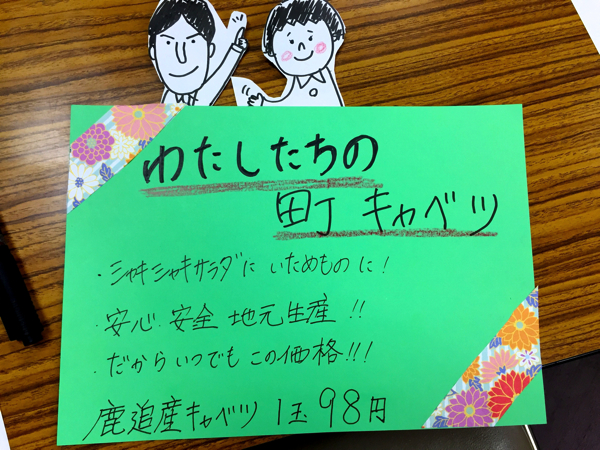 わたしたちの
町 キャベツ
・シャキシャキサラダに いためものに!
・安心・安全 地元生産!!
・だから いつでも この価格!!!
鹿追産キャベツ 1玉 98円